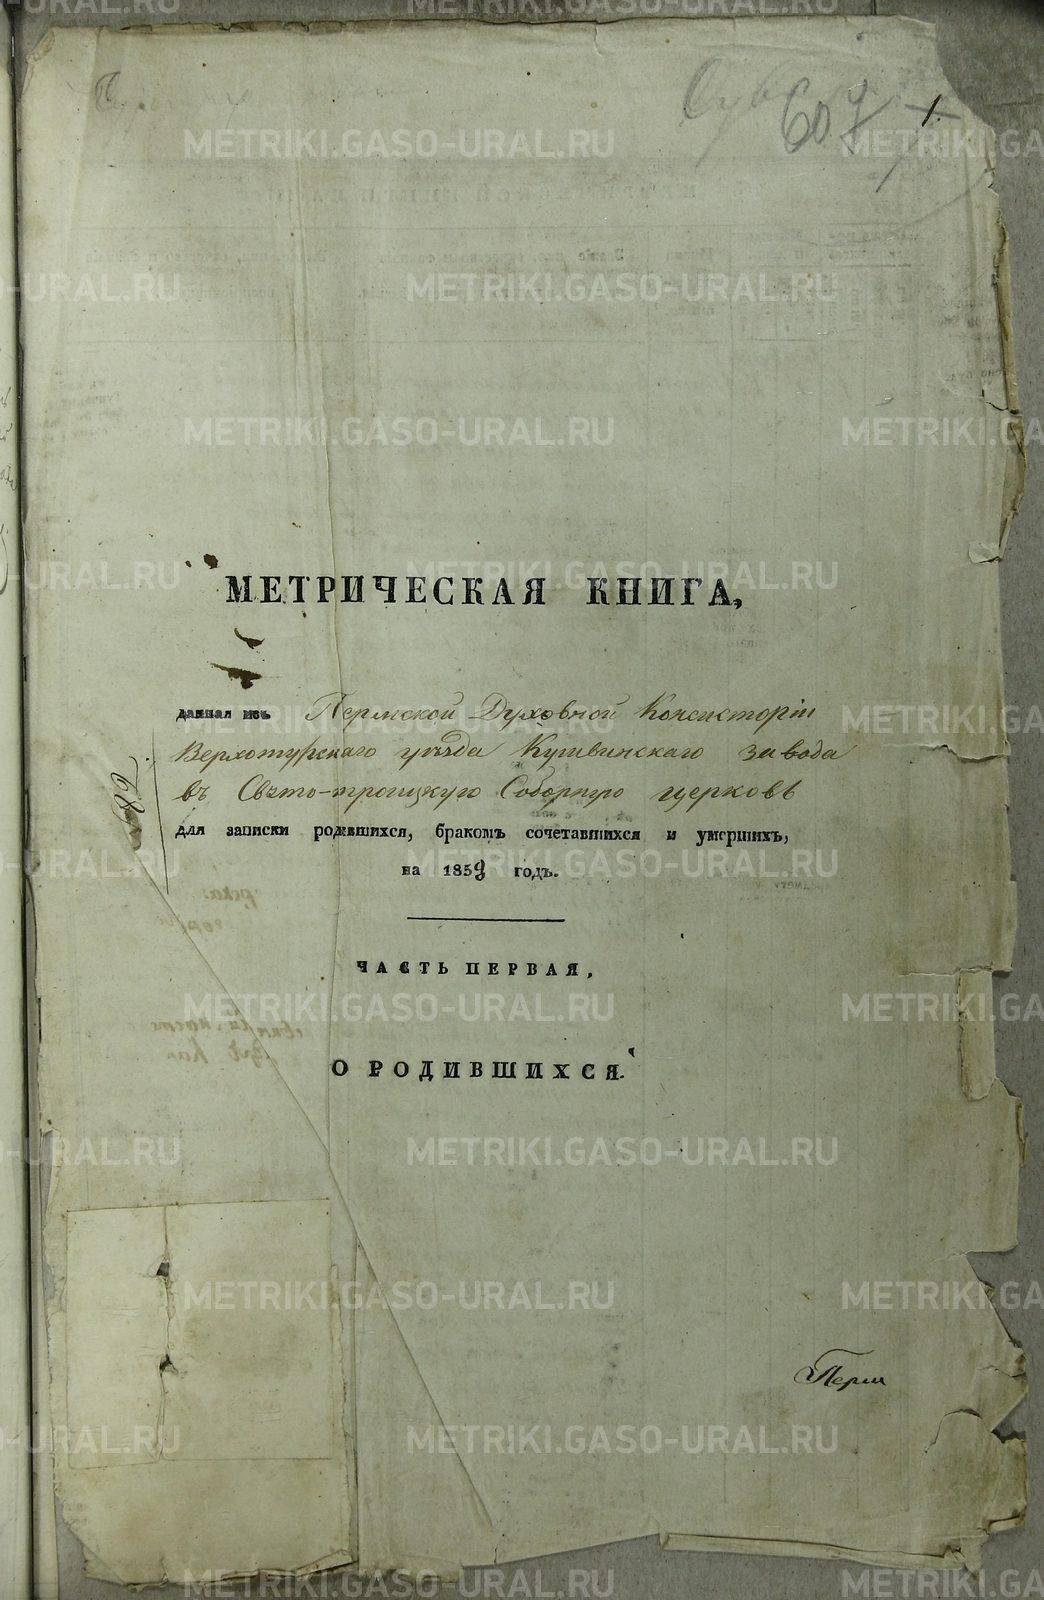 607
1.
МЕТРИЧЕСКАЯ КНИГА,
данная изъ Пермской Духовной Консисторіи
Верхотурскаго уѣзда Кушвинскаго завода
въ Свято-троицкую Соборную церковь
для записки родившихся, бракомъ сочетавшихся и умершихъ,
на 1859 годъ.
ЧАСТЬ ПЕРВАЯ,
О РОДИВШИХСЯ.
METRIKI.GASO-URAL.RU